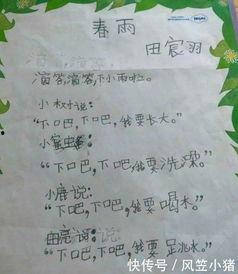 春雨
田宸羽
滴答,滴答,下小雨啦。
小树说:
“下吧,下吧,我要长大。”
小蜜蜂:
“下吧,下吧,我要洗澡。”
小鹿说:
“下吧,下吧,我要喝水。”
田亮说:
“下吧,下吧,我要跳水。”
快传号/风笠小猪